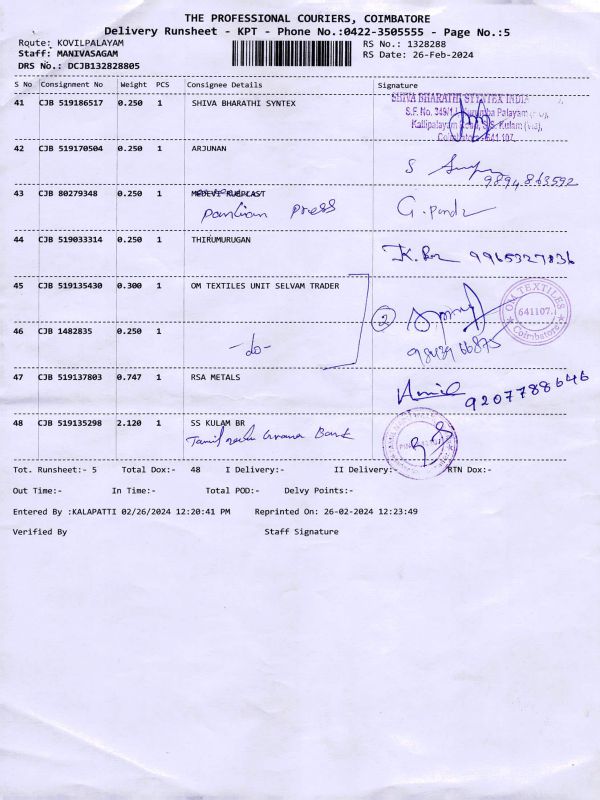 THE PROFESSIONAL COURIERS, COIMBATORE
Delivery Runsheet - KPT - Phone No.:0422-3505555 - Page No.:5
Route: KOVILPALAYAM
RS No.: 1328288
Staff: MANIVASAGAM
RS Date: 26-Feb-2024
DRS No.: DCJB132828805
S No Consignment No Weight PCS Consignee Details Signature
41 CJB 519186517 0.250 1 SHIVA BHARATHI SYNTEX
SHIVA BHARATHI SYNTEX INDIA
S.F. No. 349/1, Kurumba Palayam
Kallipalayam Road, S.S. Kulam (Via),
Coimbatore - 641 107.
42 CJB 519170504 0.250 1 ARJUNAN
9894863592
43 CJB 80279348 0.250 1
Pandian Press
44 CJB 519033314 0.250 1 THIRUMURUGAN
9965327836
45 CJB 519135430 0.300 1 OM TEXTILES UNIT SELVAM TRADER
2
OM TEXTILES
641107.
Coimbatore
46 CJB 1482835 0.250 1
-do-
9843966875
47 CJB 519137803 0.747 1 RSA METALS
9207788646
48 CJB 519135298 2.120 1 SS KULAM BR
Tamil nadu Grama Bank
Tot. Runsheet:- 5 Total Dox:- 48 I Delivery:- II Delivery:- RTN Dox:-
Out Time:- In Time:- Total POD:- Delvy Points:-
Entered By :KALAPATTI 02/26/2024 12:20:41 PM Reprinted On: 26-02-2024 12:23:49
Verified By Staff Signature